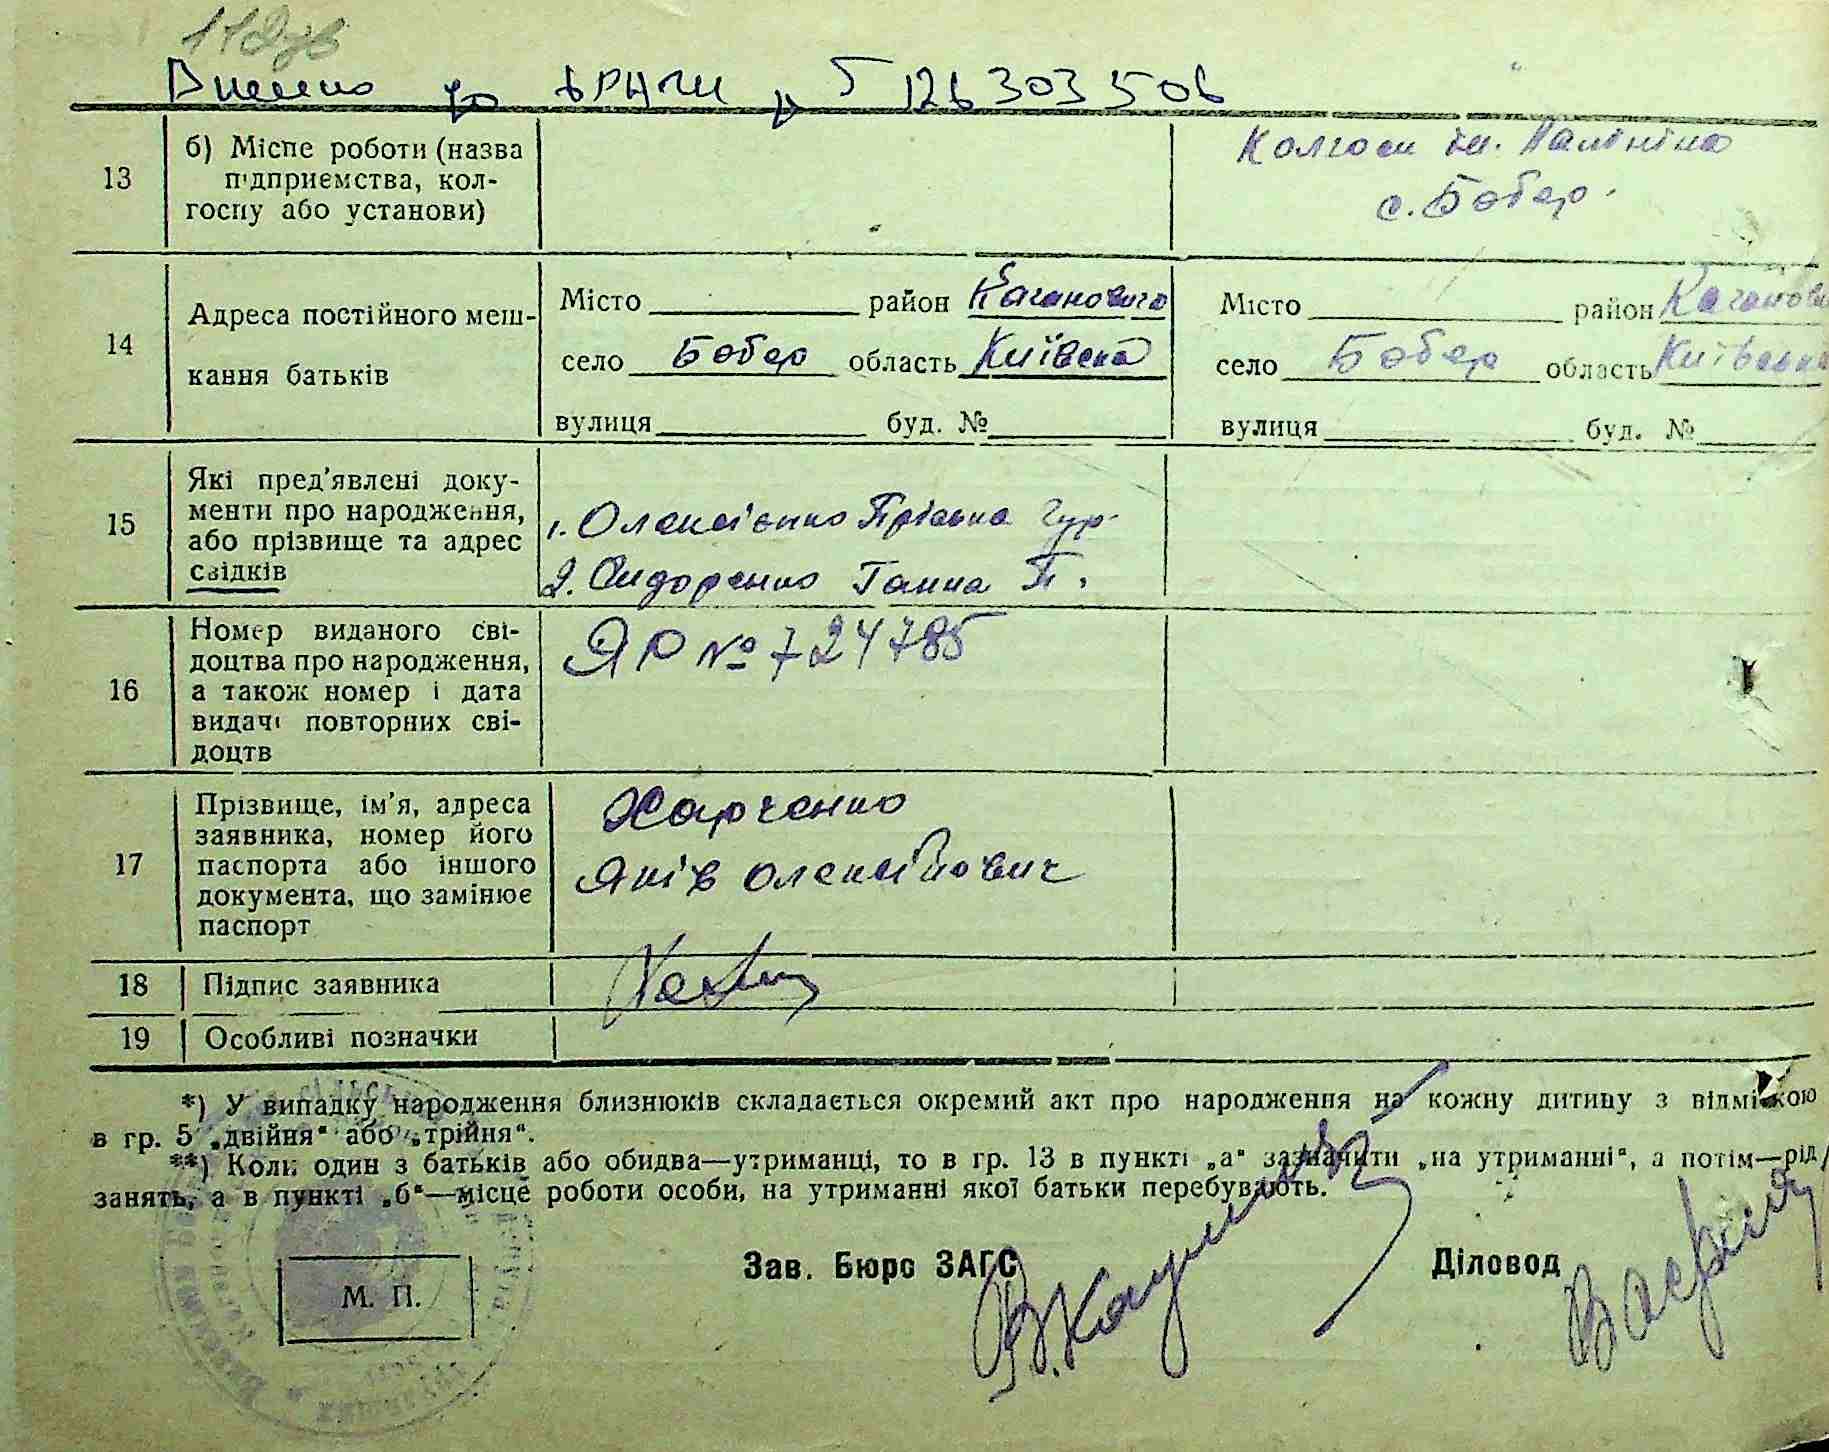 Внесено до ДРАЦС р 126303506
13
б) Місце роботи (назва підприємства, колгоспу або установи)
Колгосп ім. Калініна
с. Бобер.
14
Адреса постійного мешкання батьків
Місто район Кагановича
село Бобер область Київська
вулиця буд. №
Місто район Каганови
село Бобер область Київська
вулиця буд. №
15
Які пред'явлені документи про народження, або прізвище та адрес свідків
1. Олексієнко
2. Сидоренко Ганна П.
16
Номер виданого свідоцтва про народження, а також номер і дата видачі повторних свідоцтв
ЯР № 724785
17
Прізвище, ім'я, адреса заявника, номер його паспорта або іншого документа, що замінює паспорт
Харченко
Яків Олексійович
18
Підпис заявника
19
Особливі позначки
*) У випадку народження близнюків складається окремий акт про народження на кожну дитину з відміткою
в гр. 5 „двійня“ або „трійня“.
**) Коли один з батьків або обидва—утриманці, то в гр. 13 в пункті „а“ зазначити „на утриманні“, а потім—рід
занять, а в пункті „б“—місце роботи особи, на утриманні якої батьки перебувають.
М. П.
Зав. Бюро ЗАГС
Діловод